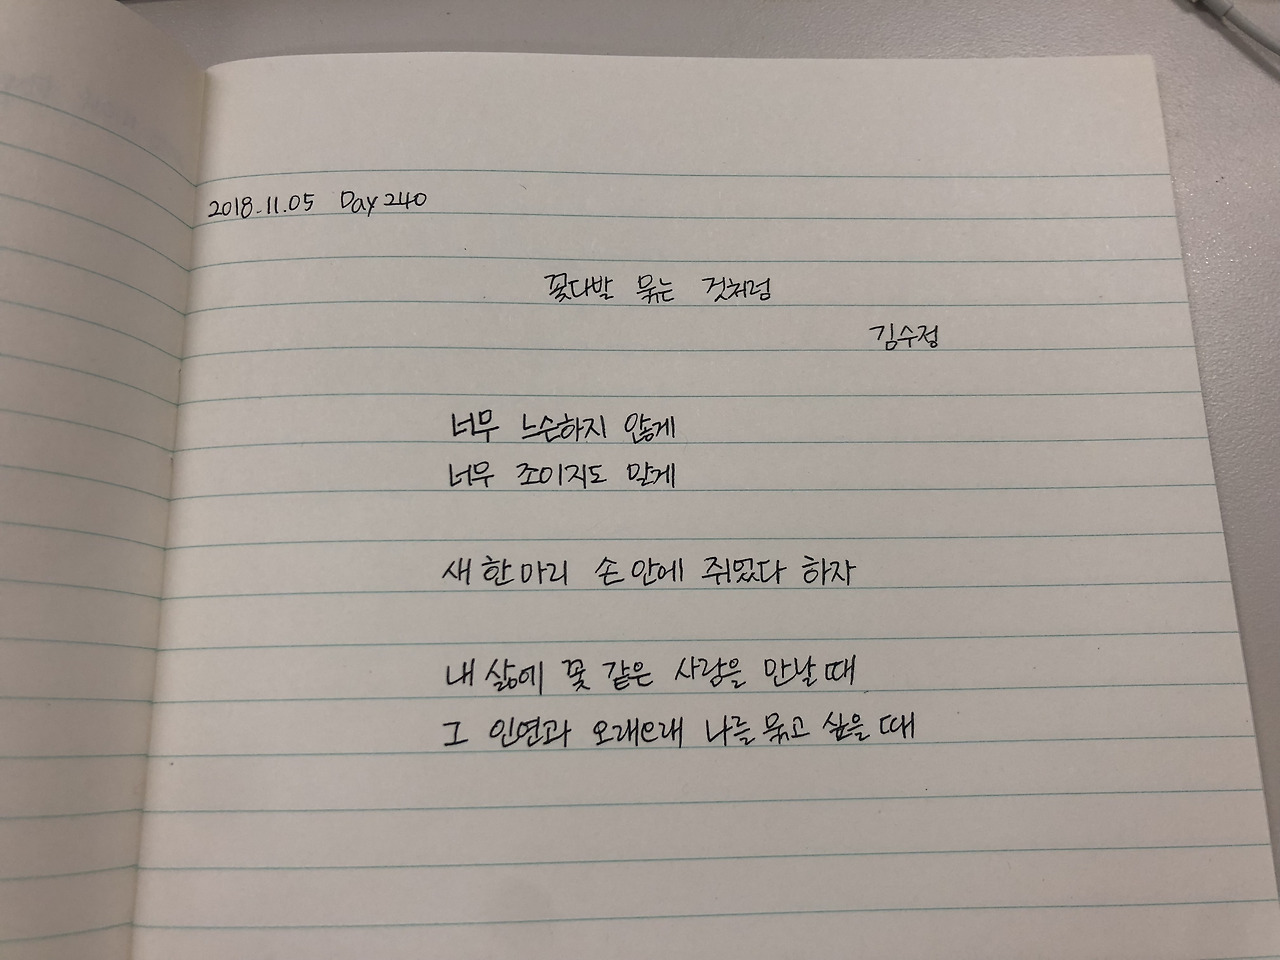 2018.11.05 Day 240
꽃다발 묶는 것처럼
김수정
너무 느슨하지 않게
너무 조이지도 말게
새 한마리 손 안에 쥐었다 하자
내 삶에 꽃 같은 사람을 만날 때
그 인연과 오래오래 나를 묶고 싶을 때